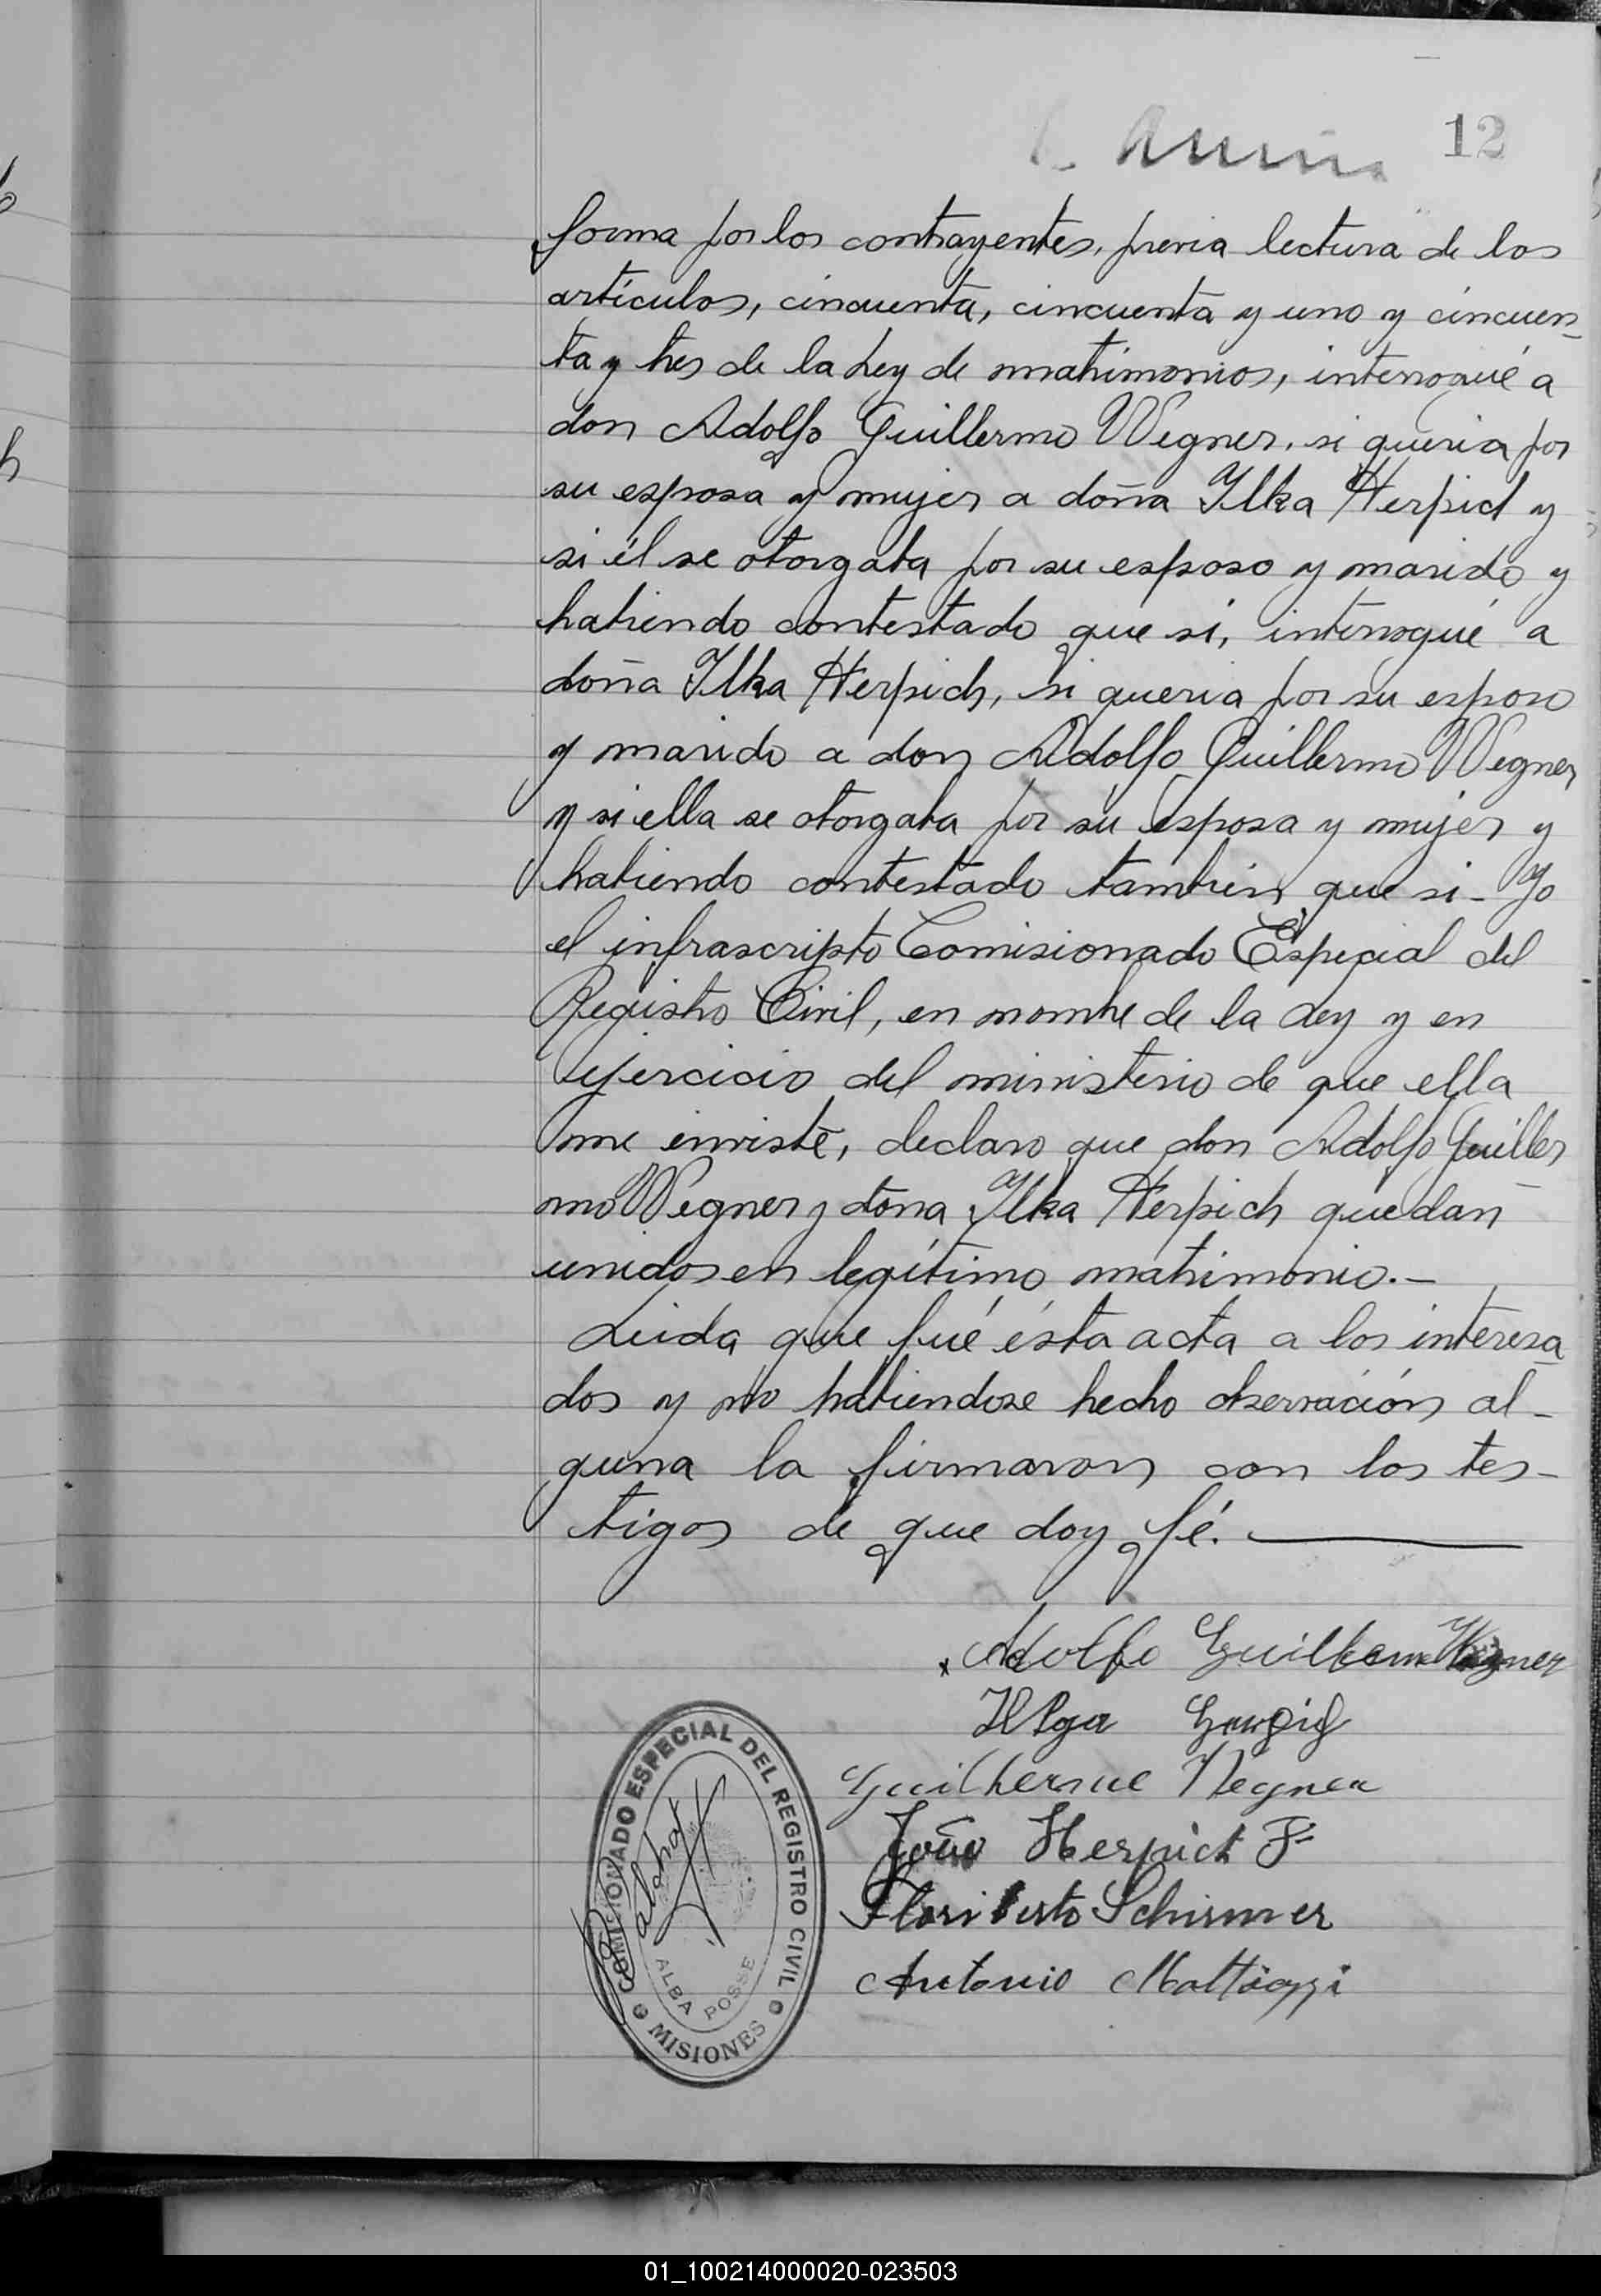 12
forma por los contrayentes, previa lectura de los
artículos, cincuenta, cincuenta y uno y cincuen-
ta y tres de la Ley de matrimonios, interrogué a
don Adolfo Guillermo Wegner, si queria por
su esposa y mujer a doña Ylka Herpich y
si él se otorgaba por su esposo y marido y
habiendo contestado que si, interrogué a
doña Ylka Herpich, si queria por su esposo
y marido a don Adolfo Guillermo Wegner,
y si ella se otorgaba por su esposa y mujer y
habiendo contestado tambien que si - Yo
el infrascripto Comisionado Especial del
Registro Civil, en nombre de la Ley y en
ejercicio del ministerio de que ella
me enviste, declaro que don Adolfo Guiller
mo Wegner y doña Ylka Herpich quedan
unidos en legítimo matrimonio.-
Leida que fué ésta acta a los interesa
dos y no habiendose hecho observación al-
guna la firmaron con los tes-
tigos de que doy fé.
Adolfo Guillermo Wegner
Ilga
Guilherme Wegner
João Herpich F=
Floriberto Schirmer
Antonio Mattiazzi
COMISIONADO ESPECIAL DEL REGISTRO CIVIL
ALBA POSSE
MISIONES
01_100214000020-023503